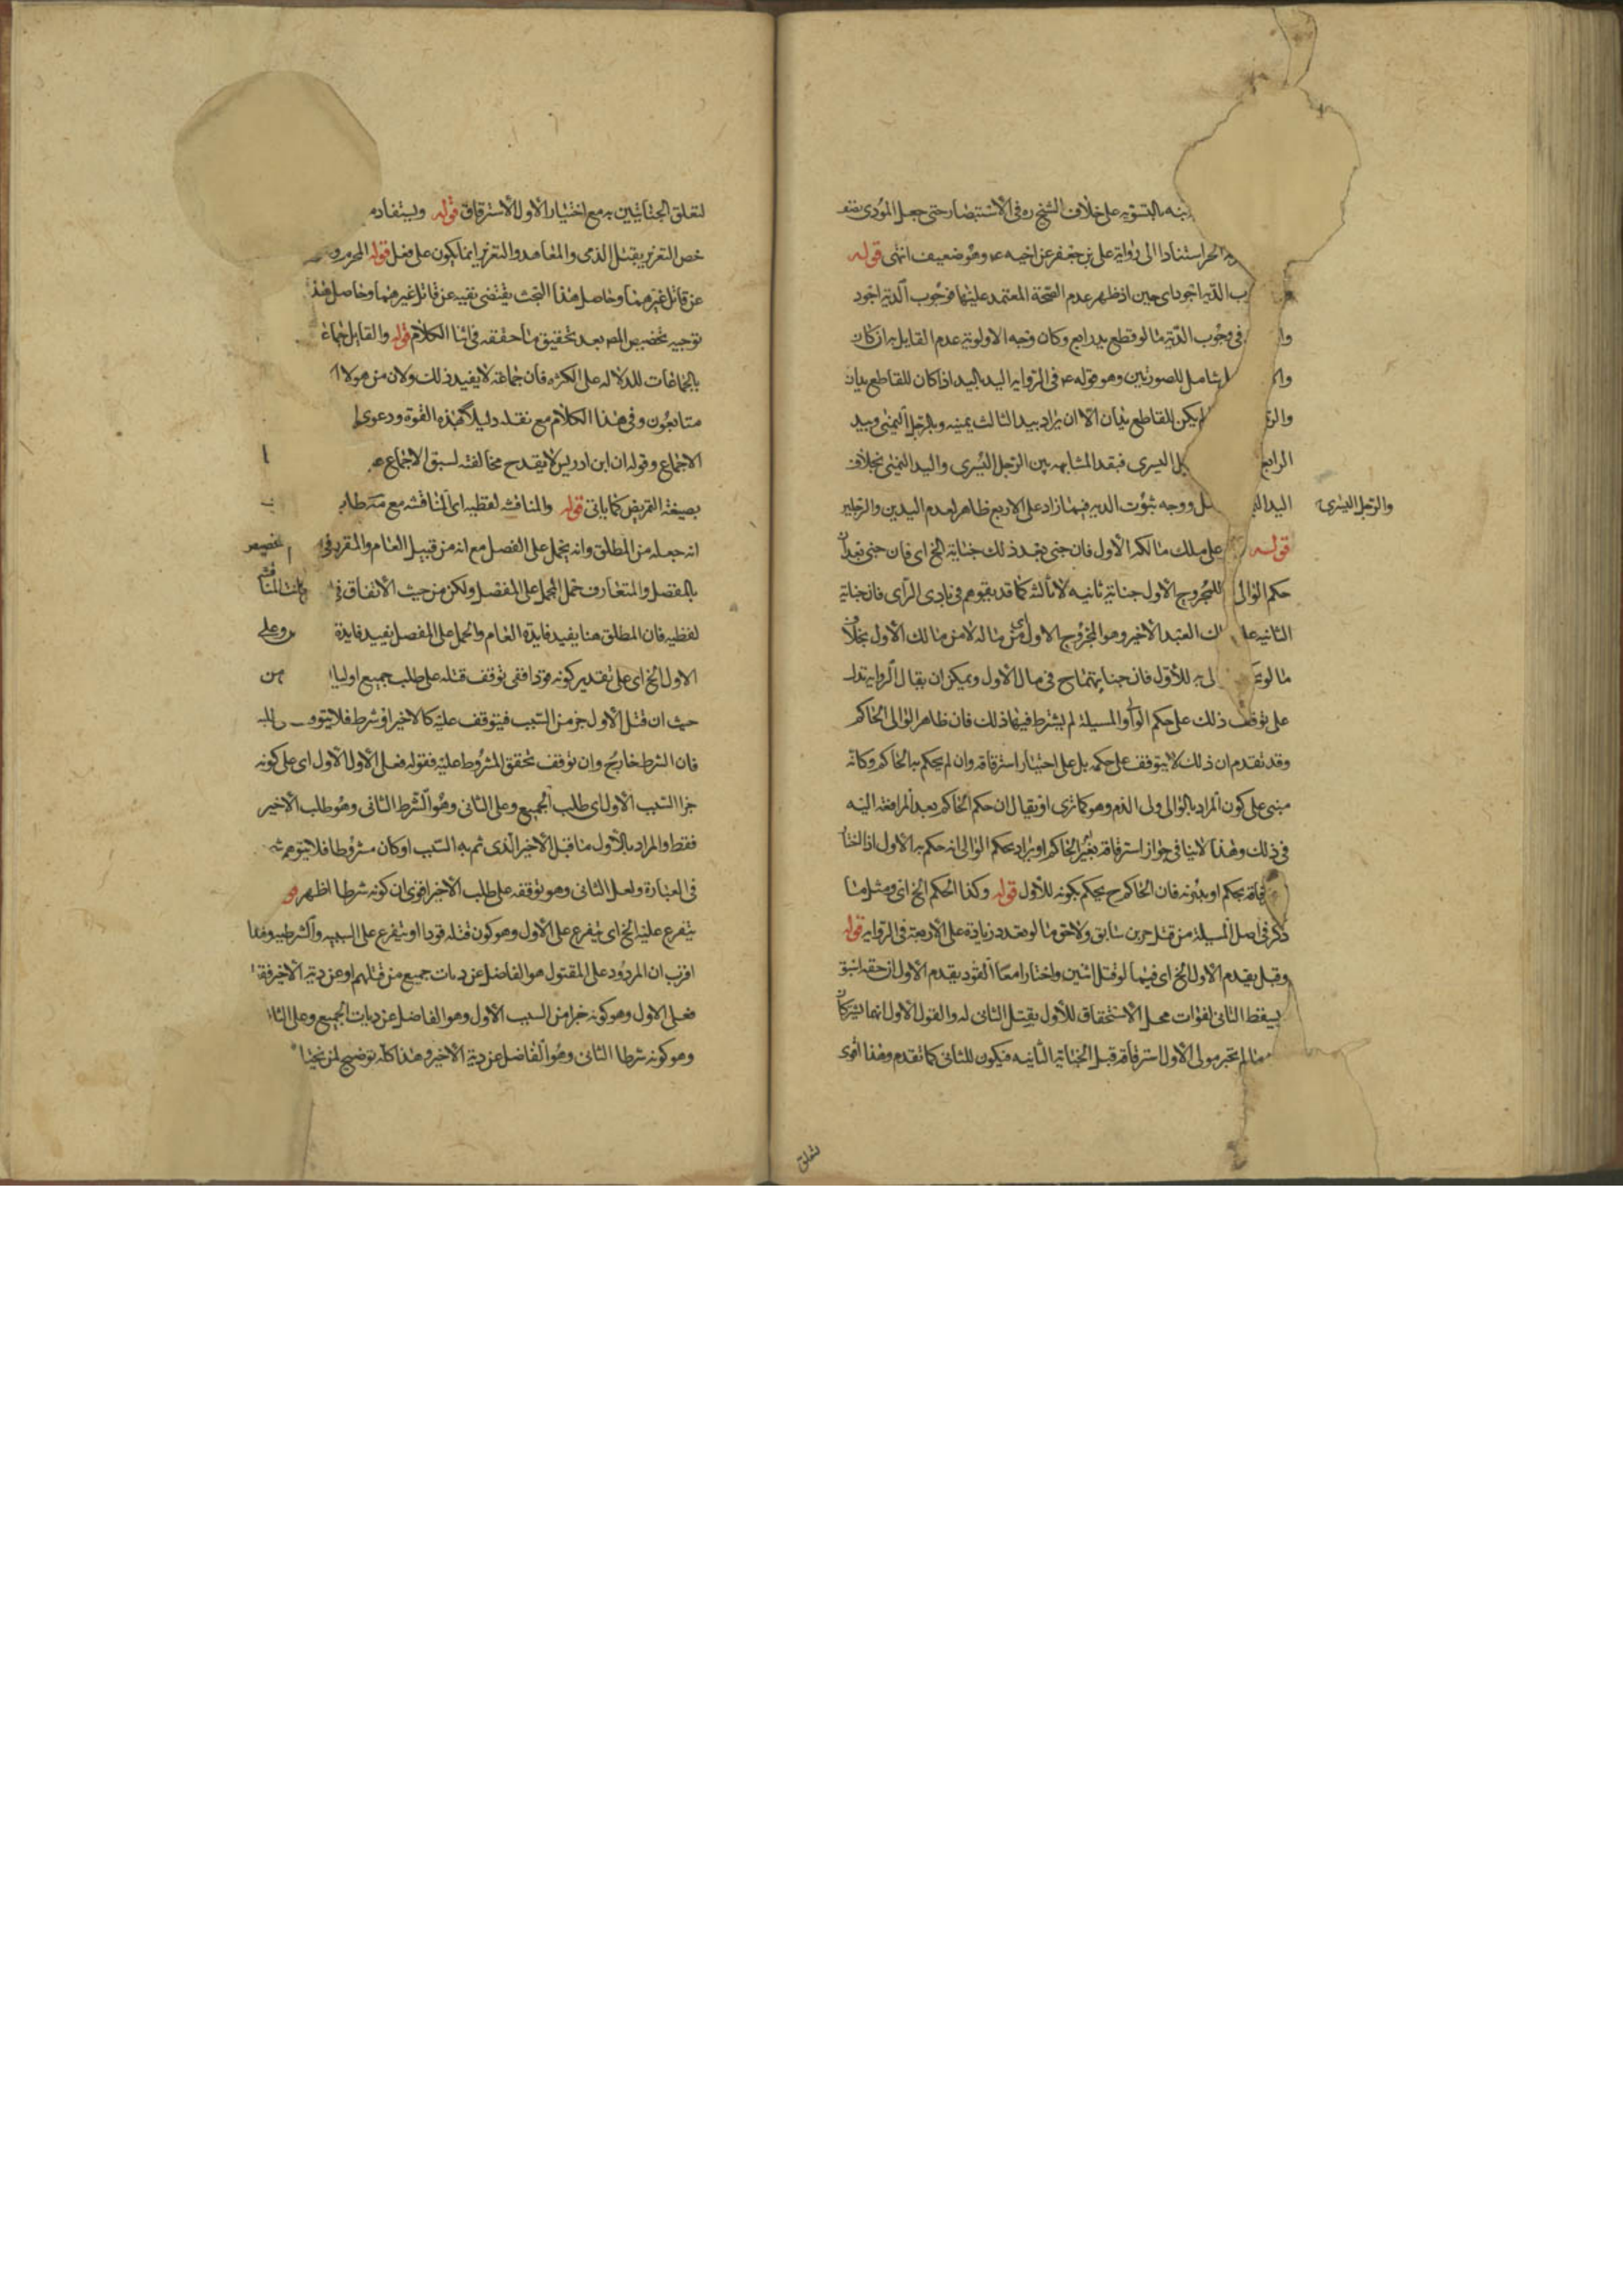 بالتسوية على خلاف الشيخ ره في الاستبصار حتى جعل المؤدى
الحر استنادا الى رواية على بن جعفر عن اخيه ع وهو ضعيف انتهى قوله
الدية اجود اى حين اذ ظهر عدم الصحة المعتمد عليها فوجوب الدية اجود
في وجوب الدية ما لو قطع يد رابع وكان وجه الاولوية عدم القايل به ان كان
شامل للصورتين وهو قوله ع في الرواية اليد باليد اذا كان للقاطع يدان
يكن للقاطع يدان الا ان يراد بيد الثالث يمينه وبالرجل اليمنى وبيد
الرابع اليسرى فبقد المشابهه بين الرجل اليسرى واليد اليمنى بخلاف
والرجل اليسرى
اليد ووجه ثبوت الديه فيما زاد على الاربع ظاهر لعدم اليدين والرجلين
قوله على ملك مالكه الاول فان جنى بعد ذلك جناية الخ اى فان جنى بعد ان
حكم الوالى للمجروح الاول جناية ثانيه لا ثالثه كما قد يتوهم في بادى الراى فان جناية
الثانيه العبد الاخير وهو المجروح الاول من ماله لا من مالك الاول بخلاف
ما لو به للاول فان جنايتهما ح في مال الاول ويمكن ان يقال الرواية تدل
على توقف ذلك على حكم الوالى والمسيلة لم يشترط فيها ذلك فان ظاهر الوالى الحاكم
وقد تقدم ان ذلك لا يتوقف على حكمه بل على اختيار استرقاقه وان لم يحكم به الحاكم وكانه
مبنى على كون المراد بالوالى ولى الدم وهو كما ترى او يقال ان حكم الحاكم بعد المرافعة اليه
في ذلك وهذا لا ينافي جواز استرقاقه بغير الحاكم او يراد بحكم الوالى انه حكم به الاول اذا اختار
بحكم او بدونه فان الحاكم ح يحكم بكونه للاول قوله وكذا الحكم الخ اى ومثل ما
ذكر في اصل المسيلة من قتل حرين سابق ولاحق ما لو تعدد زيادة على الاربعة في الرواية قوله
وقيل يقدم الاول الخ اى فيما لو قتل اثنين واختارا معا القود يقدم الاول لان حقه اسبق
يسقط الثانى لفوات محل الاستحقاق للاول بقتل الثانى له والقول الاول انهما يشتركان
ما لم يختر مولى الاول استرقاقه قبل الجناية الثانيه فيكون للثانى كما تقدم وهذا اقوى
لتعلق
لتعلق الجنايتين به مع اختيار الاول الاسترقاق قوله ويستفاد
خص التعزير بقتل الذمى والمعاهد والتعزير انما يكون على فعل قوله المحرم
عن قاتل غيرهما وحاصل هذا البحث يقتضى نفيه عن قاتل غيرهما وحاصل هذا
توجيه تخصيص المص بعد تحقيق ما حققه في اثنا الكلام قوله والقايل جماعة
بالجماعات للدلاله على الكثره فان جماعة لا يفيد ذلك ولان من هولا
متابعون وفي هذا الكلام مع نقله دليلا لهذه القوة ودعوى
الاجماع وقوله ان ابن ادريس لا يقدح مخالفته لسبق الاجماع
بصيغة التمريض كما ياتى قوله والمناقشه لفظيه اى المناقشه مع
انه جعله من المطلق وانه يحمل على المفصل مع انه من قبيل العام والمقرر
بالمفصل والمتعارف حمل المجمل على المفصل ولكن من حيث الاتفاق في
لفظيه فان المطلق هنا يفيد فايدة العام والحمل على المفصل يفيد فايدة وعلى
الاول الخ اى على تقدير كونه قودا ففى توقف قتله على طلب جميع اوليا من
حيث ان قتل الاول جز من السبب فيتوقف عليه كالاخير او شرط فلا يتوقف
فان الشرط خارج وان توقف تحقق المشروط عليه فقوله فعلى الاول الاول اى على كونه
جزا السبب الاول اى طلب الجميع وعلى الثانى وهو الشرط الثانى وهو طلب الاخير
فقط والمراد بالاول ما قبل الاخير الذى تم به السبب او كان مشروطا فلا يتوهم
في العبارة ولعل الثانى وهو توقفه على طلب الاخير اقوى ان كونه شرطا اظهر
يتفرع عليه الخ اى يتفرع على الاول وهو كون قتله قودا او يتفرع على السببيه والشرطيه وهذا
اقرب ان المردود على المقتول هو الفاضل عن ديات جميع من قتلهم او عن دية الاخير فقط
فعلى الاول وهو كونه جزا من السبب الاول وهو الفاضل عن ديات الجميع وعلى الثانى
وهو كونه شرطا الثانى وهو الفاضل عن دية الاخير وهذا كله توضيح